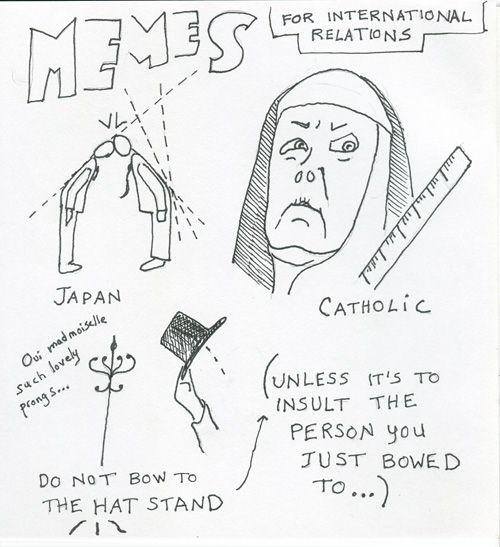 MEMES
FOR INTERNATIONAL
RELATIONS
JAPAN
CATHOLIC
Oui madmoiselle
such lovely
prongs...
DO NOT BOW TO
THE HAT STAND
(UNLESS IT'S TO
INSULT THE
PERSON YOU
JUST BOWED
TO...)